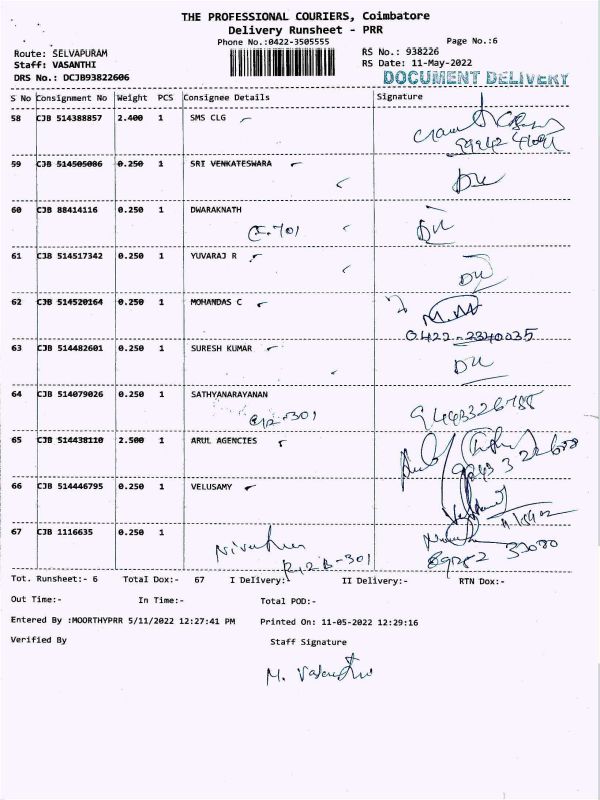 THE PROFESSIONAL COURIERS, Coimbatore
Delivery Runsheet - PRR
Phone No.:0422-3505555
Page No.:6
Route: SELVAPURAM
RS No.: 938226
Staff: VASANTHI
RS Date: 11-May-2022
DRS No.: DCJB93822606
DOCUMENT DELIVERY
S No Consignment No Weight PCS Consignee Details Signature
58 CJB 514388857 2.400 1 SMS CLG
59 CJB 514505086 0.250 1 SRI VENKATESWARA
60 CJB 88414116 0.250 1 DWARAKNATH
61 CJB 514517342 0.250 1 YUVARAJ R
62 CJB 514520164 0.250 1 MOHANDAS C
0422-2340035
63 CJB 514482601 0.250 1 SURESH KUMAR
64 CJB 514079026 0.250 1 SATHYANARAYANAN
65 CJB 514438110 2.500 1 ARUL AGENCIES
66 CJB 514446795 0.250 1 VELUSAMY
67 CJB 1116635 0.250 1
Tot. Runsheet:- 6 Total Dox:- 67 I Delivery:- II Delivery:- RTN Dox:-
Out Time:- In Time:- Total POD:-
Entered By :MOORTHYPRR 5/11/2022 12:27:41 PM Printed On: 11-05-2022 12:29:16
Verified By Staff Signature
M. Vasanthi